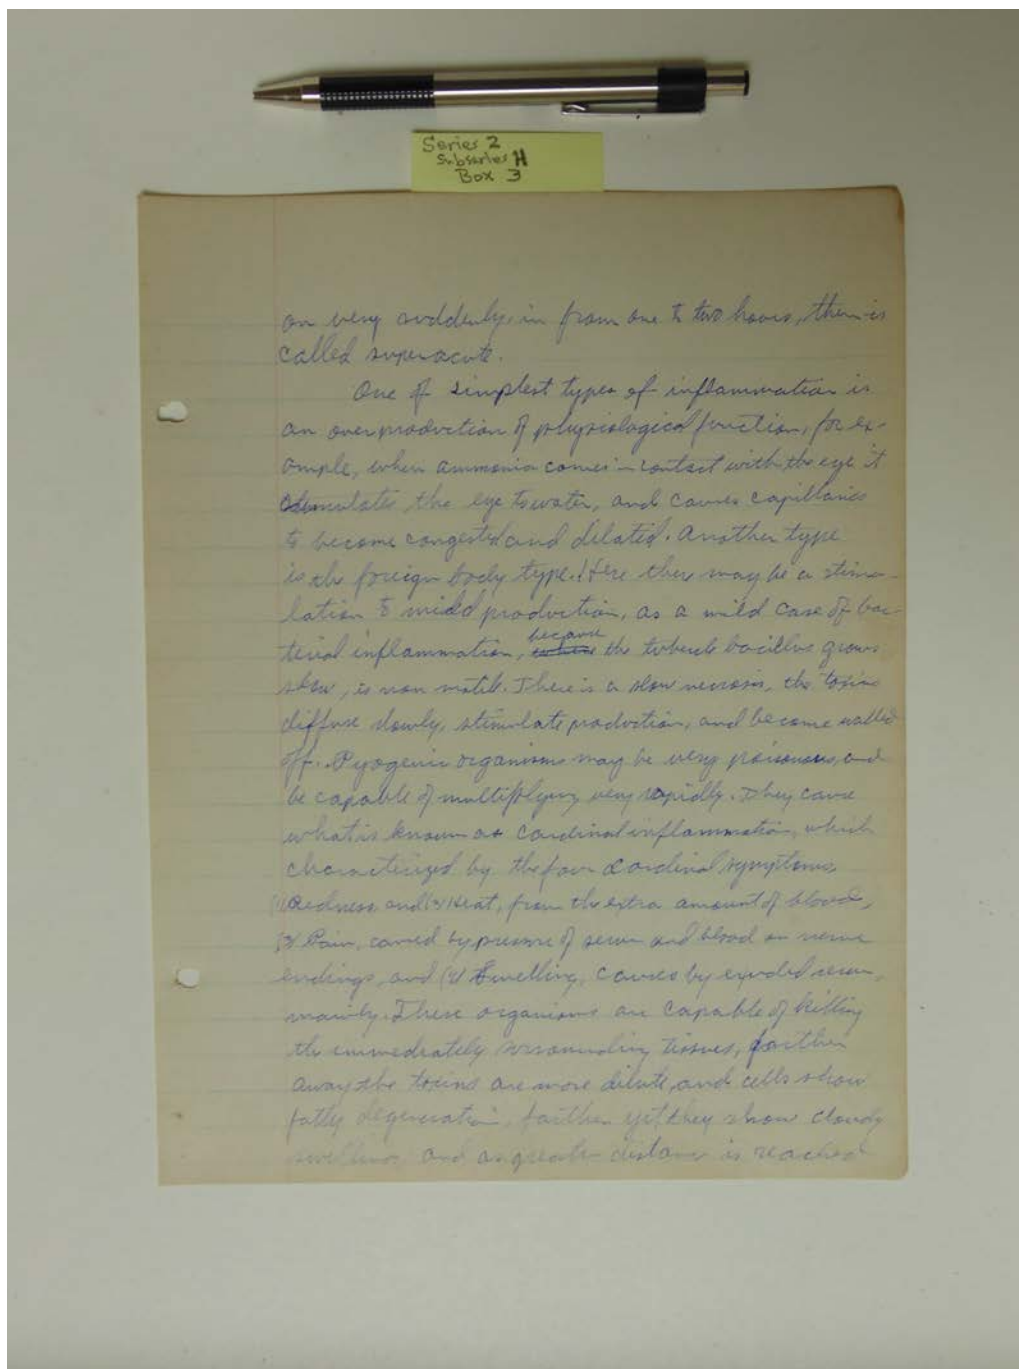 Series 2
Subseries H
Box 3
on very suddenly, in from one to two hours, then is
called superacute.
One of simplest types of inflammation is
an over production of physiological function, for ex-
ample, when ammonia comes in contact with the eye it
stimulates the eye to water, and causes capillaries
to become congested and dilated. Another type
is the foreign body type. Here there may be a stimu-
lation to mild production, as a mild case of bac-
terial inflammation, because the tubercle bacillus grows
slow, is non motile. There is a slow necrosis, the toxins
diffuse slowly, stimulate production, and become walled
off. Pyogenic organisms may be very poisonous, and
be capable of multiplying very rapidly. They cause
what is known as cardinal inflammation, which
characterized by the four cardinal symptoms
(1) Redness, and (2) Heat, from the extra amount of blood,
(3) Pain, caused by pressure of serum and blood on nerve
endings, and (4) Swelling, causes by exuded serum,
mainly. These organisms are capable of killing
the immediately surrounding tissues, farther
away the toxins are more dilute, and cells show
fatty degeneration, farther yet they show cloudy
swelling and as greater distance is reached